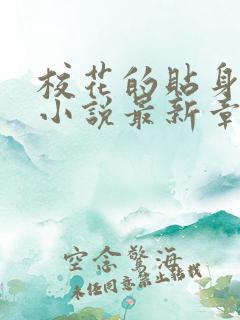 校花的貼身
小說最新章
空念驚海
未经同意禁止转载